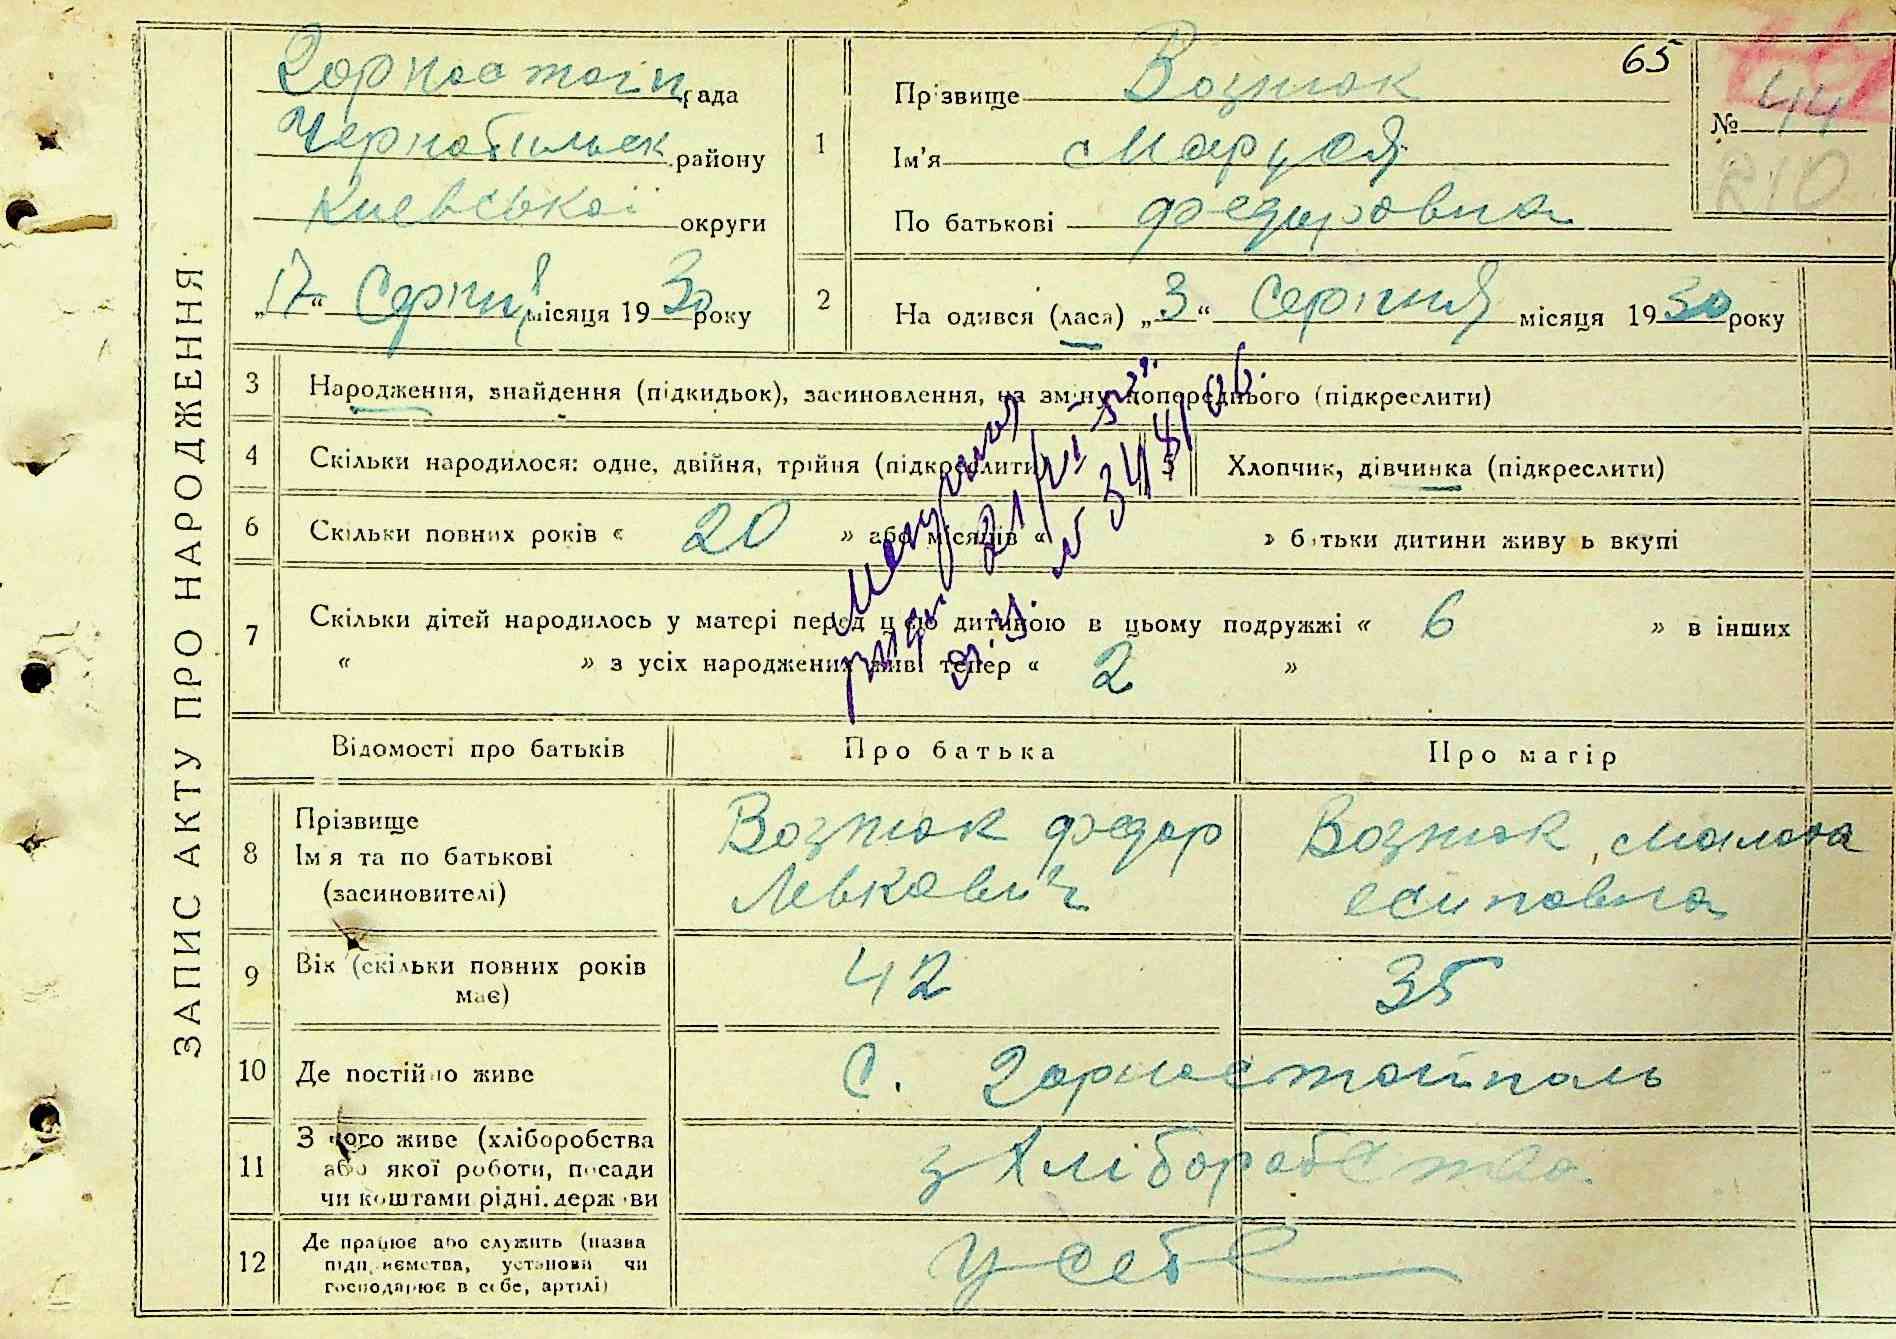 ЗАПИС АКТУ ПРО НАРОДЖЕННЯ
Горностайп рада
Чернобильск району
Киевської округи
„17“ Серпня місяця 1930 року
65
№ 44
210
1 Прізвище Возняк
Ім'я Маруся
По батькові Федоровна
2 На одився (лася) „3“ Серпня місяця 1930 року
3 Народження, знайдення (підкидьок), засиновлення, на зміну попереднього (підкреслити)
4 Скільки народилося: одне, двійня, трійня (підкреслити)
5 Хлопчик, дівчинка (підкреслити)
6 Скільки повних років « 20 » або місяців « » батьки дитини живуть вкупі
7 Скільки дітей народилось у матері перед цією дитиною в цьому подружжі « 6 » в інших
« » з усіх народжених живі тепер « 2 »
21/VI-52 г.
№ 348/об.
Відомості про батьків Про батька Про матір
8 Прізвище
Ім'я та по батькові
(засиновителі)
Возняк Федор
Левкович
Возняк
Есиповна
9 Вік (скільки повних років
має)
42 35
10 Де постійно живе С. Горностайполь
11 З чого живе (хліборобства
або якої роботи, посади
чи коштами рідні, держави
з Хліборобства
12 Де працює або служить (назва
підприємства, установи чи
господарює в себе, артілі)
у себе